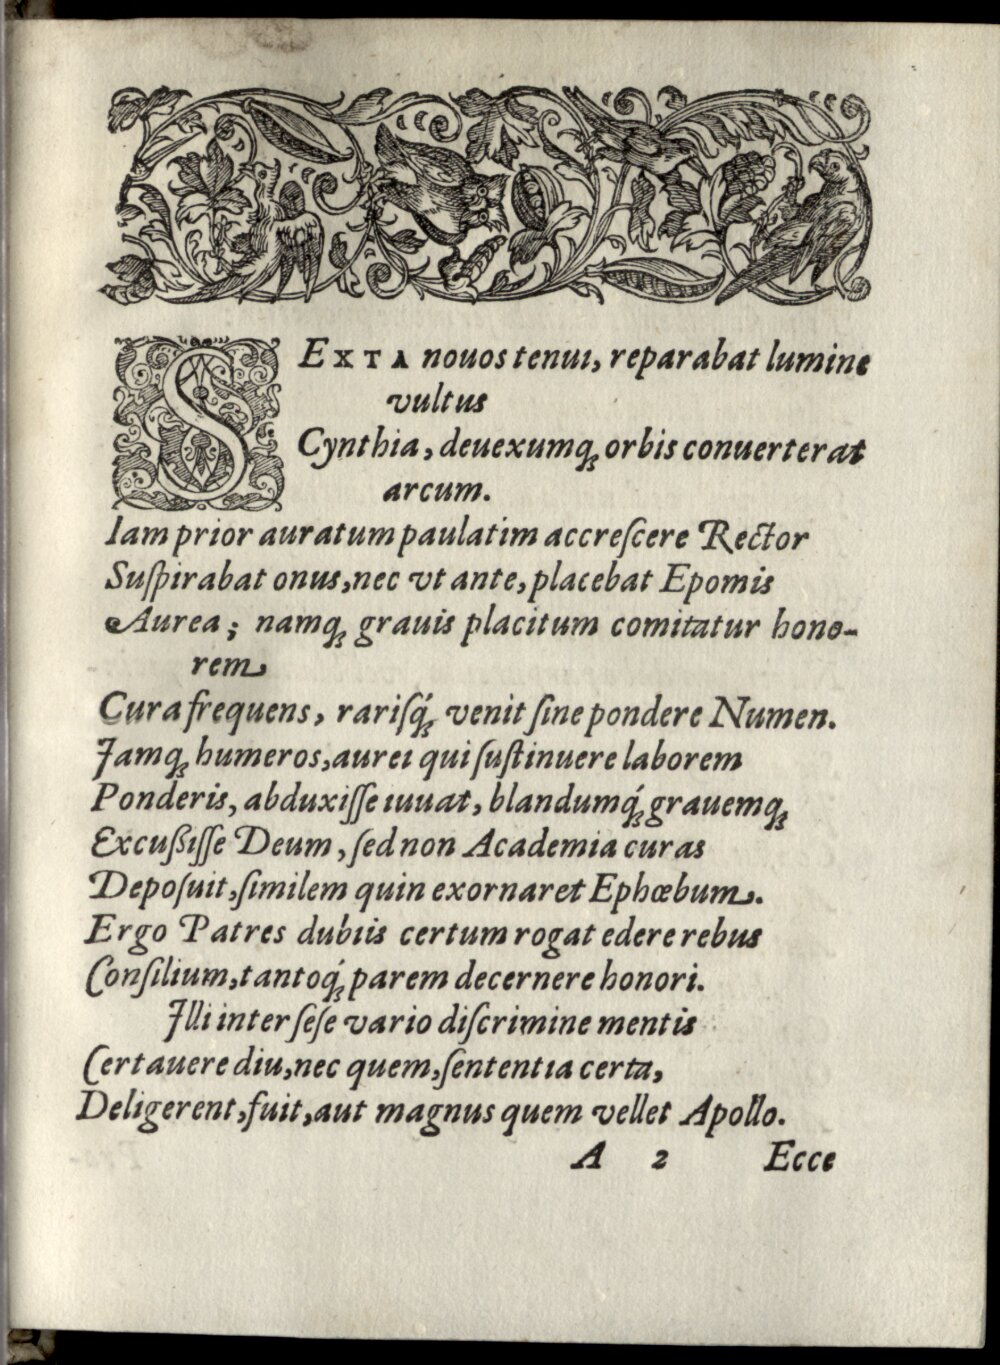 SEXTA nouos tenui, reparabat lumine
vultus
Cynthia, deuexumq́; orbis conuerterat
arcum.
Iam prior auratum paulatim accreſcere Rector
Suſpirabat onus, nec vt ante, placebat Epomis
Aurea; namq; grauis placitum comitatur hono-
rem
Cura frequens, rariſq́; venit ſine pondere Numen.
Jamq; humeros, aurei qui ſuſtinuere laborem
Ponderis, abduxiſſe iuuat, blandumq́; grauemq;
Excußiſſe Deum, ſed non Academia curas
Depoſuit, ſimilem quin exornaret Ephœbum.
Ergo Patres dubiis certum rogat edere rebus
Conſilium, tantoq́; parem decernere honori.
Jlli inter ſeſe vario diſcrimine mentis
Certauere diu, nec quem, ſententia certa,
Deligerent, fuit, aut magnus quem vellet Apollo.
A 2 Ecce